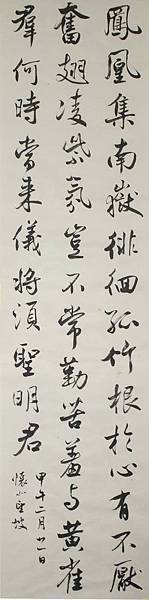 鳳凰集南嶽徘徊孤竹根於心有不厭
奮翅凌紫氛豈不常勤苦羞与黃雀
羣何時當来儀將須聖明君
甲午二月廿一日
懷坡